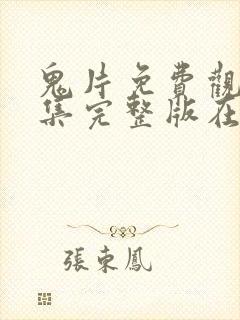 鬼片免費觀
集完整版在
張東鳳